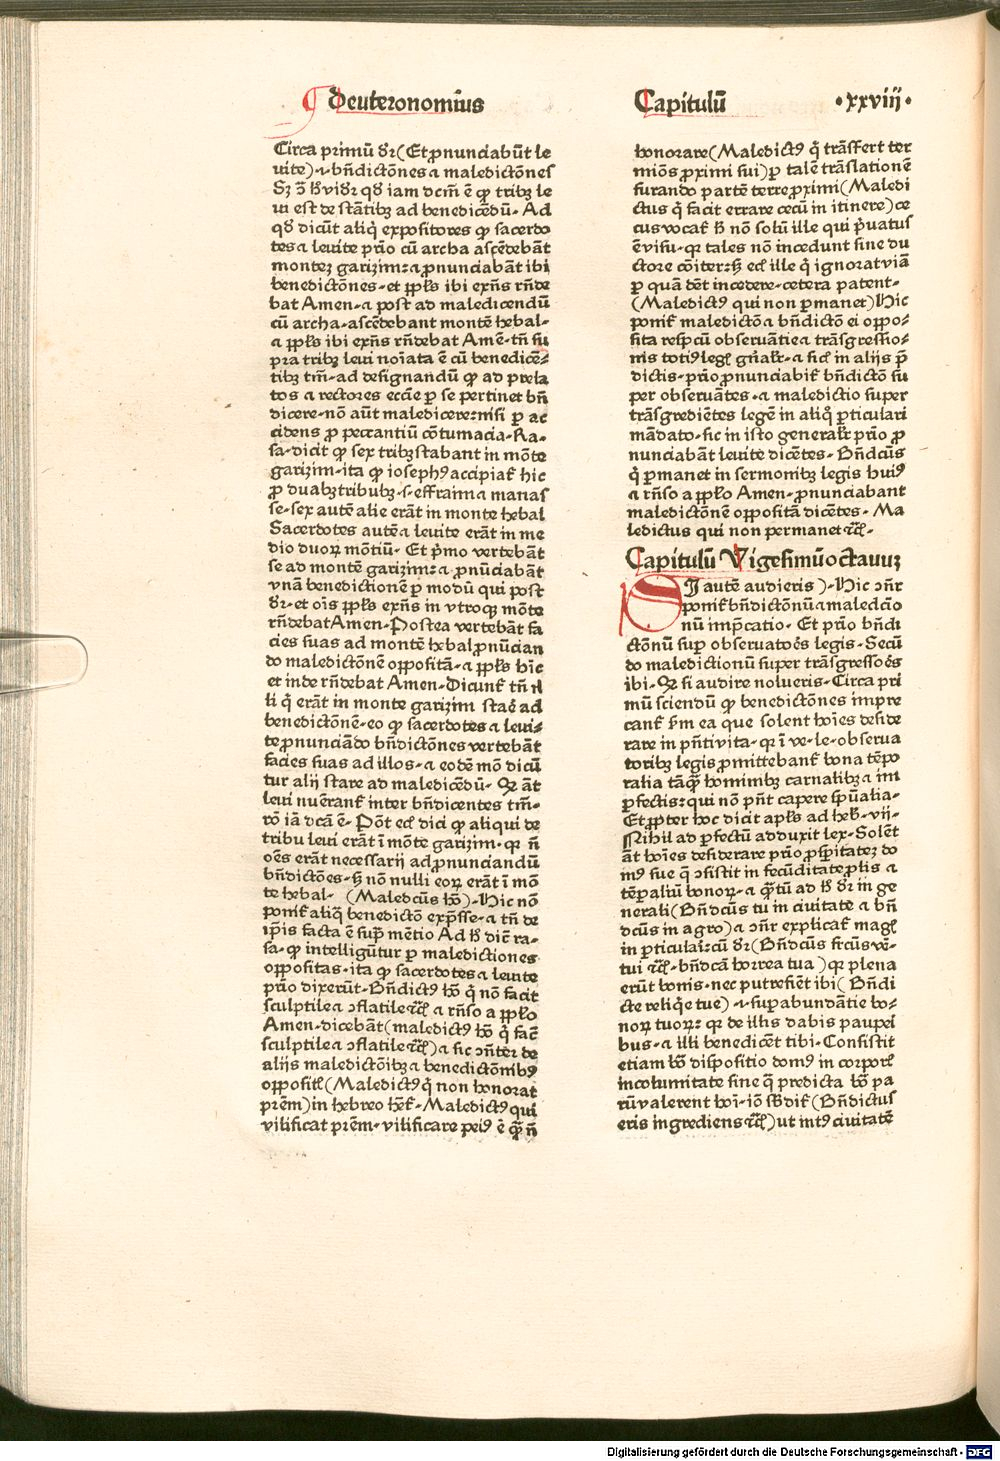 Deuteronomius
Capitulū ·xxviij·
Circa primū dr̄(Et ꝓnunciabūt le
uite)⁊ bn̄dictōnes ⁊ maledictōnes
Sꝫ ↄ̄ hͦ vidr̄ qd̓ iam dcm̄ ē ꝙ tribꝫ le
ui est de stātibꝫ ad benedicēdū· Ad
qd̓ dicūt aliq̇ expositores ꝙ sacerdo
tes ⁊ leuite prīo cū archa ascēdebāt
monteꝫ garizim: ⁊ ꝓnunciabāt ibi
benedictiōnes· et ppl̓s ibi exn̄s rn̄de
bat Amen· ⁊ post ad maledicendū
cū archa· ascēdebant montē hebal·
⁊ ppl̓s ibi exn̄s rn̄debat Amē· tn̄ su
pra tribꝫ leui noīata ē cū benedicē⸗
tibꝫ tm̄· ad designandū ꝙ ad prela
tos ⁊ rectores eccīe ꝑ se pertinet bn̄
dicere· nō aūt maledicere: nisi ꝑ ac
cidens ꝓ peccantiū cōtumacia· Ra·
sa· dicit ꝙ sex tribꝫ stabant in mōte
garizim· ita ꝙ ioseph⁹ accipiat̄ hic
ꝓ duabꝫ tribubꝫ· s· effraim ⁊ manas
se· sex autē alie erāt in monte hebal
Sacerdotes autē ⁊ leuite erāt in me
dio duoꝝ mōtiū· Et pͥmo vertebāt
se ad montē garizim: ⁊ ꝓnūciabāt
vnā benedictionē ꝑ modū qui post
dr̄· et oīs ppl̓s exn̄s in vtroqꝫ mōte
rn̄debat Amen· Postea vertebāt fa
cies suas ad montē hebal ꝓnūcian
do maledictōnē oppositā· ⁊ ppl̓s hīc
et inde rn̄debat Amen· Dicunt̄ tn̄ il
li q̇ erāt in monte garizim stare ad
benedictōnē· eo ꝙ sacerdotes ⁊ leui⸗
te ꝓnunciādo bn̄dictōnes vertebāt
facies suas ad illos· ⁊ eodē mō dicū
tur alij stare ad maledicēdū· Qꝛ āt
leui nūerant̄ inter bn̄dicentes tm̄·
rō iā dcā ē· Pōt ecī dici ꝙ aliqui de
tribu leui erāt ī mōte garizim· qꝛ n̄
oēs erāt necessarij ad ꝓnunciandū
bn̄dictōes· sꝫ nō nulli eoꝝ erāt ī mō
te hebal· (Maledcūs hō)· Hic nō
ponit̄ aliq̄ benedictō exp̄sse· ⁊ tn̄ de
ip̄is facta ē supͣ mētio Ad hͦ dic̄ ra⸗
sa· ꝙ intelligūtur ꝑ maledictiones
oppositas· ita ꝙ sacerdotes ⁊ leuite
prīo dixerūt· Bn̄dict⁹ hō q̇ nō facit
sculptile ⁊ ↄflatile ⁊c̄ ⁊ rn̄so a ppl̓o
Amen· dicebāt(maledict⁹ hō q̇ fac̄
sculptile ⁊ ↄflatile ⁊c̄)⁊ sic ↄn̄ter de
alijs maledictōibꝫ ⁊ benedictōnib⁹
opposit̄(Maledict⁹ q̇ non honorat
prēm)in hebreo hēt̄· Maledict⁹ qui
vilificat prēm· vilificare pei⁹ ē q̄ n̄
honorare(Maledict⁹ q̇ trāsfert ter
mīos ꝓximi sui)ꝑ talē trāslationē
furando partē terre ꝓximi(Maledi
ctus q̇ facit errare cecū in itinere)ce
cus vocat̄ hͦ nō solū ille qui pͥuatus
ē visu· ꝙ tales nō incedunt sine du
ctore cōiter: sꝫ ecī ille q̇ ignorat viā
ꝑ quā dēt incedere· cetera patent·
(Maledict⁹ qui non ꝑmanet)Hic
ponit̄ maledictō ⁊ bn̄dictō ei oppo⸗
sita respcū obseruātie ⁊ trāsgressio⸗
nis toti⁹ leg̓ gn̄alr̄· ⁊ sic̄ in alijs p̄
dictis· prīo ꝓnunciabit̄ bn̄dictō su
per obseruātes· ⁊ maledictio super
trāsgrediētes legē in aliq̇ ꝑticulari
mādato· sic in isto generalr̄ prīo ꝓ
nunciabāt leuite dicētes· Bn̄dcūs
q̇ ꝑmanet in sermonibꝫ legis hui⁹
⁊ rn̄so a ppl̓o Amen· ꝓnunciabant
maledictōnē oppositā dicētes· Ma
ledictus qui non permanet ⁊c̄·
Capitulū Vigesimūoctauuꝫ
SI autē audieris)· Hic ↄn̄r
ponit̄ bn̄dictōnū ⁊ maledcāo
nū imp̄catio· Et prīo bn̄di
ctōnū sup observatoēs legis· Secū
do maledictionū super trāsgressoēs
ibi· Qꝛ si audire nolueris· Circa pri
mū sciendū ꝙ benedictōnes impre
cant̄ sm̄ ea que solent hoīes deside
rare in pn̄ti vita· qꝛ ī ve· le· obserua
toribꝫ legis ꝓmittebant̄ bona tēpo
ralia tāqͣ hominibꝫ carnalibꝫ ⁊ im
ꝑfectis: qui nō pn̄t capere sp̄ualia·
Et ꝓpter hoc dicit apl̓s ad heb̓· vij·
Nihil ad ꝑfectū adduxit lex· Solēt
āt hoīes desiderare prīo ꝓsꝑitateꝫ do
m⁹ sue q̄ ↄsistit in fecūditate ꝓlis ⁊
tēꝑaliū bonoꝝ· ⁊ q̄tū ad hͦ dr̄ in ge
nerali(Bn̄dcūs tu in ciuitate ⁊ bn̄
dcūs in agro)⁊ ↄn̄r explicat̄ mag̓
in ꝑticulari: cū dr̄(Bn̄dcūs frcūs vē⸗
tui ⁊c̄· bn̄dcā horrea tua )qꝛ plena
erūt bonis· nec putrefiēt ibi( Bn̄di
cte reliq̇e tue) ⁊ supabundātie bo⸗
noꝝ tuoꝝ: qꝛ de illis dabis paupei
bus· ⁊ illi benedicēt tibi· Consistit
etiam hō dispositio dom⁹ in corporl̓
incolumitate sine q̄ predicta hō pa
rū valerent hoī· iō sb̄dit̄(Bn̄dictus
eris ingrediens ⁊c̄)ut int⁹ ciuitatē
Digitalisierung gefördert durch die Deutsche Forschungsgemeinschaft - DFG